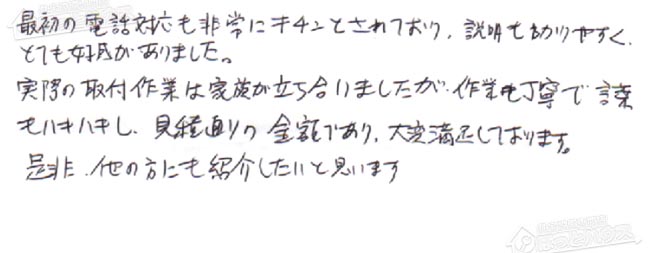 最初の電話対応も非常にキチンとされており、説明も助りやすく、
とても好感がありました。
実際の取付作業は家族が立ち合いましたが、作業も丁寧で言葉
もハキハキし、見積通りの金額であり、大変満足しております。
是非、他の方にも紹介したいと思います